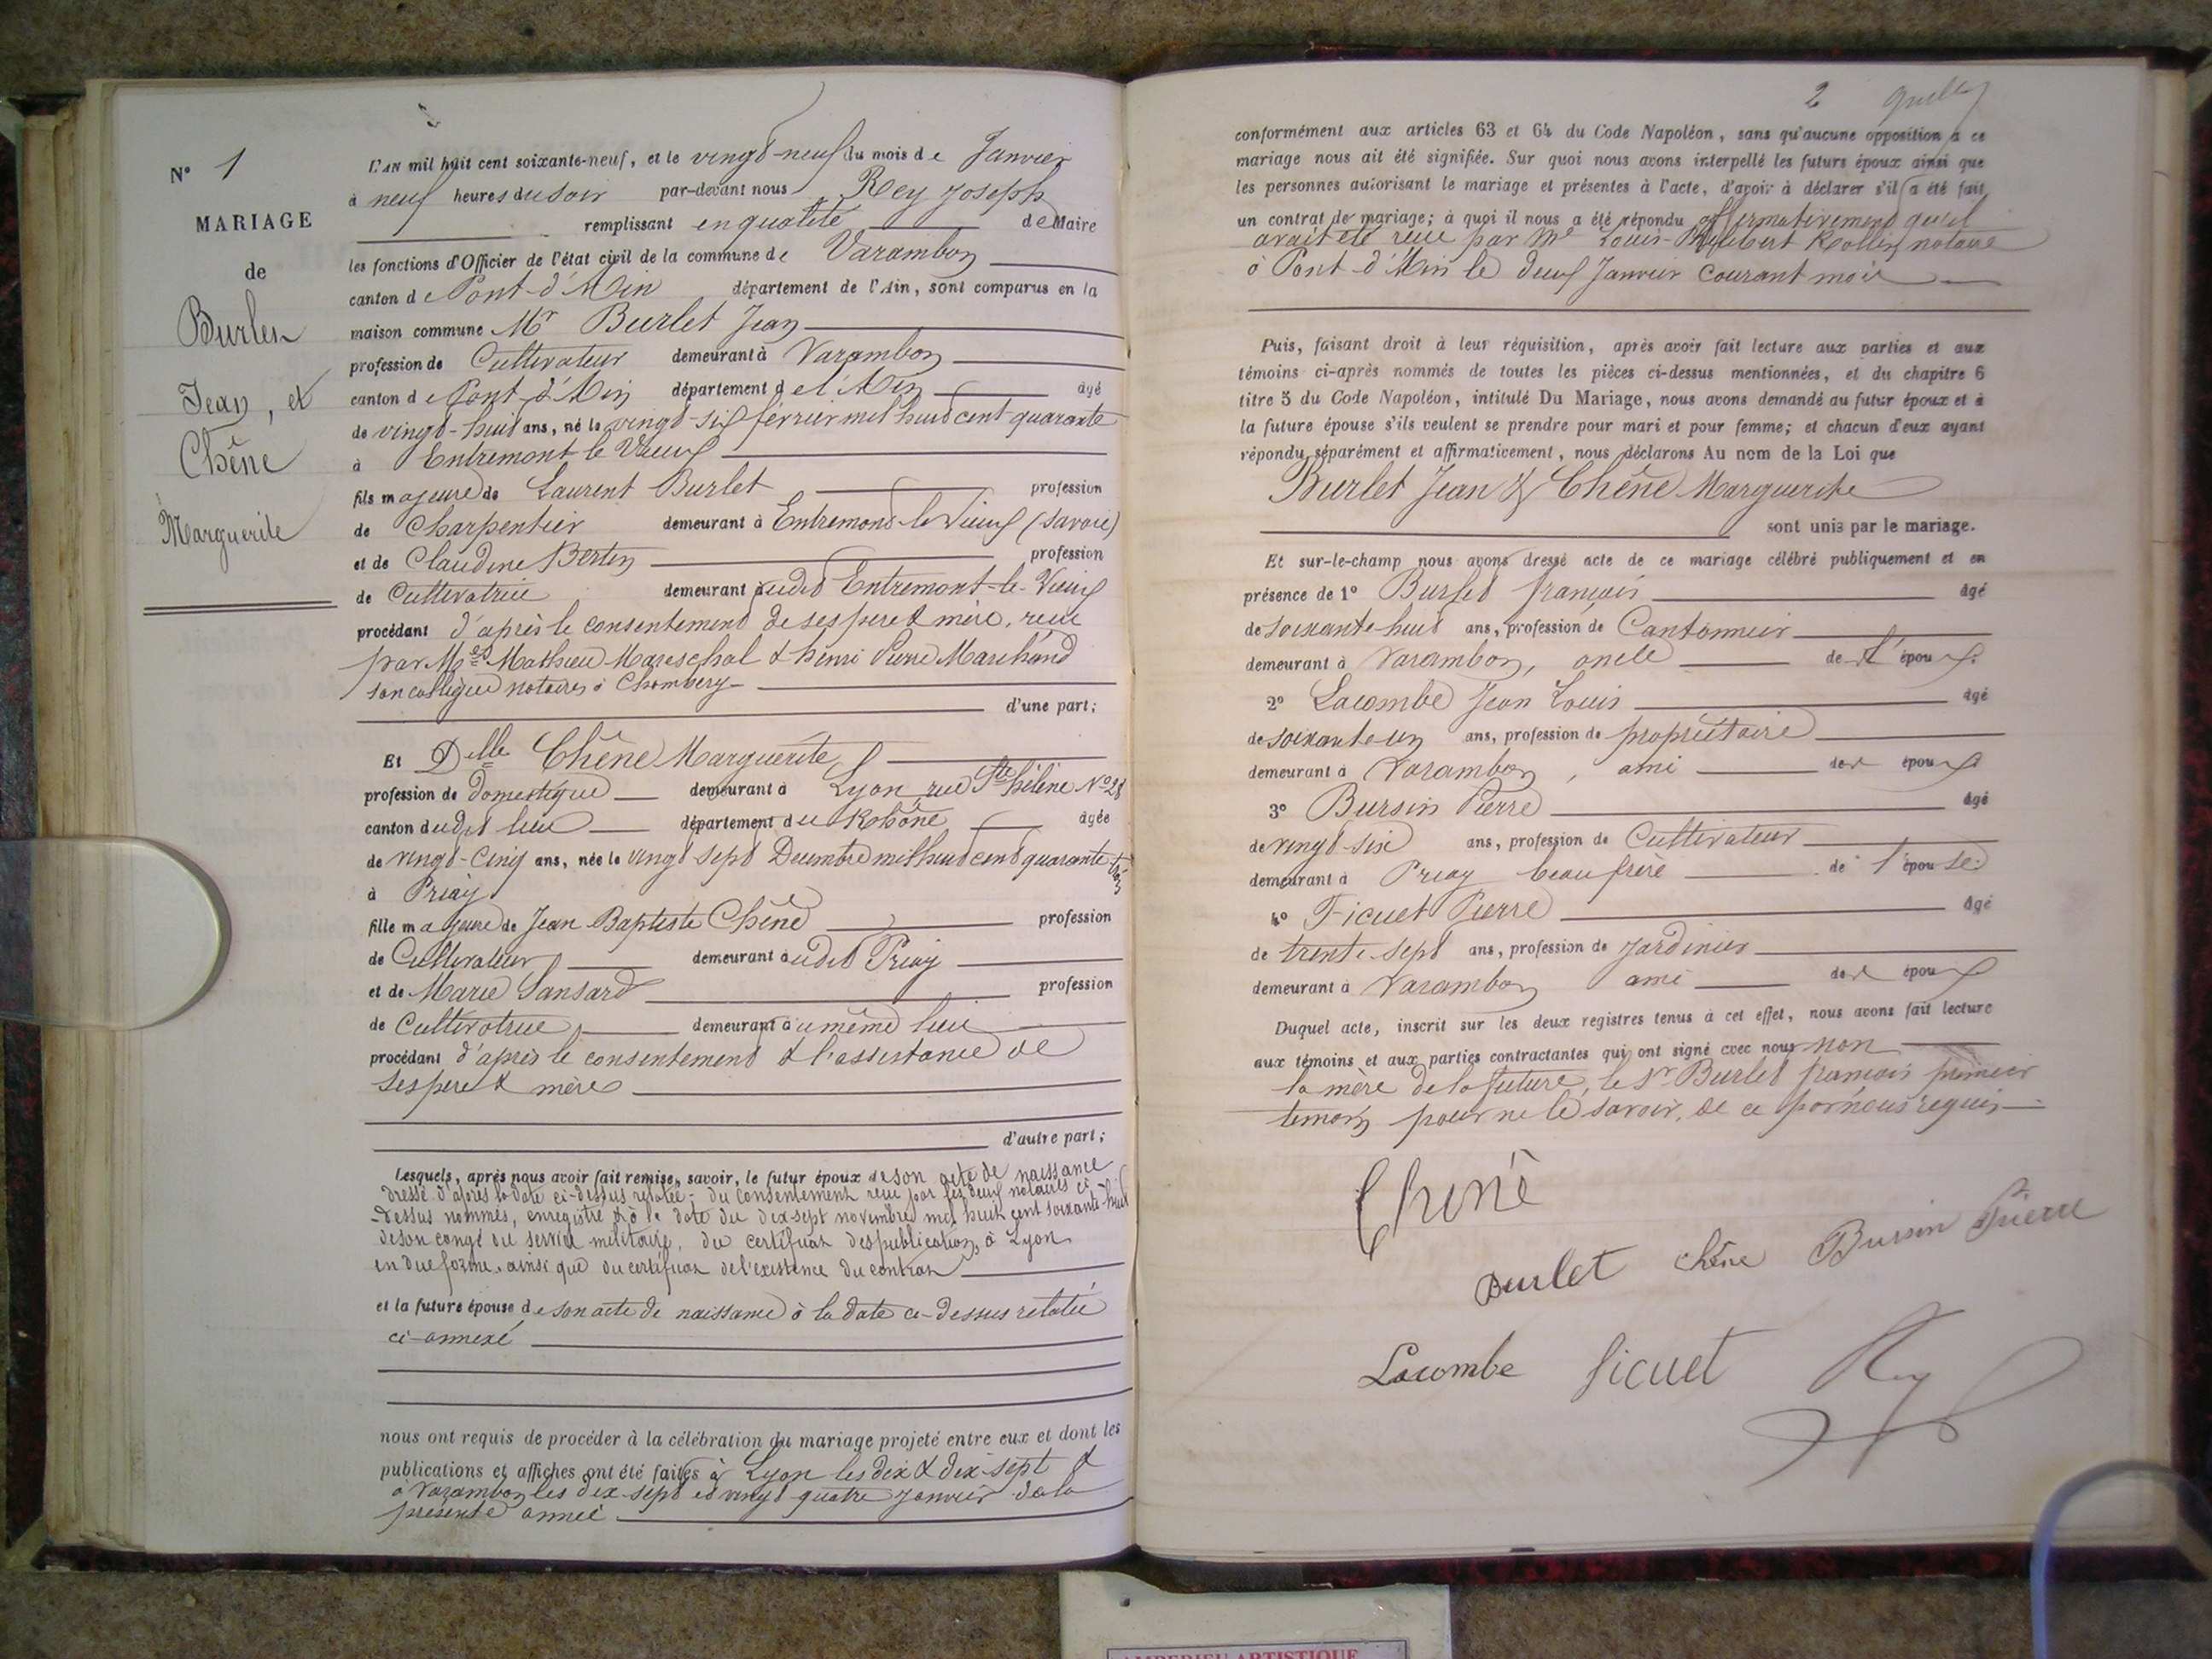 N° 1
MARIAGE
de
Burlet
Jean, et
Chêne
Marguerite
L'AN mil huit cent soixante-neuf, et le vingt-neuf du mois de Janvier
à neuf heures du soir par-devant nous Rey Joseph
remplissant en qualité de Maire
les fonctions d'Officier de l'état civil de la commune de Varambon
canton de Pont-d'Ain département de l'Ain, sont comparus en la
maison commune Mr Burlet Jean
profession de Cultivateur demeurant à Varambon
canton de Pont-d'Ain département de l'Ain âgé
de vingt-huit ans, né le vingt-six février mil huit cent quarante
à Entremont-le-Vieux
fils majeure de Laurent Burlet profession
de Charpentier demeurant à Entremont-le-Vieux (Savoie)
et de Claudine Bertin profession
de Cultivatrice demeurant audit Entremont-le-Vieux
procédant d'après le consentement de ses pere & mère, reçu
par Mes Mathieu Mareschal & henri Pierre Marchand
son collègue notaires à Chambery
d'une part;
Et Delle Chêne Marguerite
profession de domestique demeurant à Lyon rue Ste hélène N° 28
canton dudit lieu département du Rhône âgée
de vingt-cinq ans, née le vingt sept Decembre mil huit cent quarante-trois
à Priay
fille majeure de Jean-Baptiste Chêne profession
de Cultivateur demeurant audit Priay
et de Marie Sansard profession
de Cultivatrice demeurant au même lieu
procédant d'après le consentement & l'assistance de
ses pere & mère
d'autre part;
Lesquels, après nous avoir fait remise, savoir, le futur époux de son acte de naissance
dressé d'après la date ci-dessus relatée; du consentement reçu par les deux notaires ci
-dessus nommés, enregistré à la date du dix-sept novembre mil huit cent soixante-huit
de son congé du service militaire, du certificat des publications à Lyon
en due forme, ainsi que du certificat de l'existence du contrat
et la future épouse de son acte de naissance à la date ci-dessus relatée
ci-annexé
nous ont requis de procéder à la célébration du mariage projeté entre eux et dont les
publications et affiches ont été faites à Lyon les dix & dix-sept &
à Varambon les dix-sept et vingt quatre janvier de la
présente année
2
conformément aux articles 63 et 64 du Code Napoléon, sans qu'aucune opposition à ce
mariage nous ait été signifiée. Sur quoi nous avons interpellé les futurs époux ainsi que
les personnes autorisant le mariage et présentes à l'acte, d'avoir à déclarer s'il a été fait
un contrat de mariage; à quoi il nous a été répondu affirmativement qu'il
avait été reçu par Me Louis Philibert notaire
à Pont-d'Ain le deux Janvier courant mois
Puis, faisant droit à leur réquisition, après avoir fait lecture aux parties et aux
témoins ci-après nommés de toutes les pièces ci-dessus mentionnées, et du chapitre 6
titre 5 du Code Napoléon, intitulé Du Mariage, nous avons demandé au futur époux et à
la future épouse s'ils veulent se prendre pour mari et pour femme; et chacun d'eux ayant
répondu séparément et affirmativement, nous déclarons Au nom de la Loi que
Burlet Jean & Chêne Marguerite
sont unis par le mariage.
Et sur-le-champ nous avons dressé acte de ce mariage célébré publiquement et en
présence de 1° Burlet françois âgé
de soixante-huit ans, profession de Cantonnier
demeurant à Varambon, oncle de l'époux.
2° Lacombe Jean Louis âgé
de soixante un ans, profession de propriétaire
demeurant à Varambon, ami des époux
3° Bursin Pierre âgé
de vingt-six ans, profession de Cultivateur
demeurant à Priay beau frère de l'épouse
4° Ficuet Pierre âgé
de trente-sept ans, profession de Jardinier
demeurant à Varambon ami des époux
Duquel acte, inscrit sur les deux registres tenus à cet effet, nous avons fait lecture
aux témoins et aux parties contractantes qui ont signé avec nous non
la mère de la future, le Sr Burlet françois premier
temoin pour ne le savoir, de ce par nous requis
Chene
Burlet chêne Bursin Pierre
Lacombe ficuet Rey
AMBERIEU ARTISTIQUE